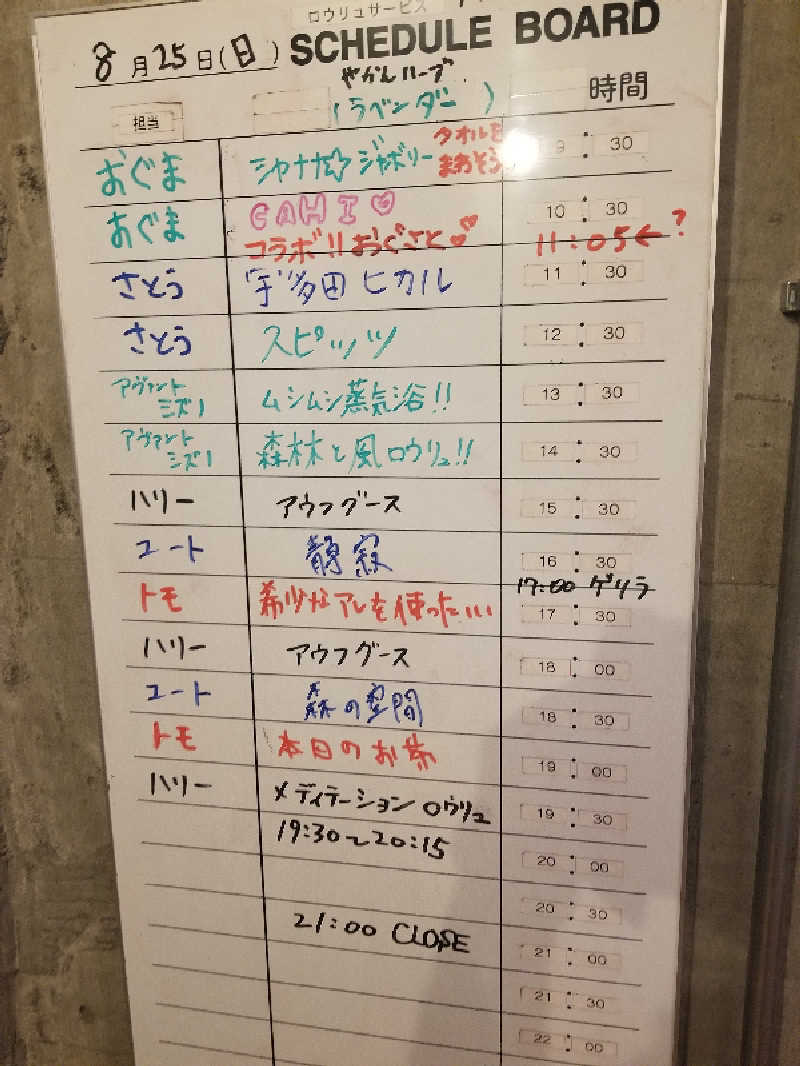 ロウリュサービス
8月25日(日) SCHEDULE BOARD
やかんハーブ
(ラベンダー)
担当 時間
おぐま シャナナ☆ジャボリー タオルを まわそう 9:30
おぐま GAHI♡ 10:30
コラボ!!おぐさと 11:05←?
さとう 宇多田ヒカル 11:30
さとう スピッツ 12:30
アヴァントミズノ ムシムシ蒸気浴!! 13:30
アヴァントミズノ 森林と風ロウリュ!! 14:30
ハリー アウフグース 15:30
ユート 静寂 16:30
17:00 ゲリラ
トモ 希少なアレを使ったいい 17:30
ハリー アウフグース 18:00
ユート 森の空間 18:30
トモ 本日のお茶 19:00
ハリー メディテーションロウリュ 19:30
19:30~20:15 20:00
20:30
21:00 CLOSE 21:00
21:30
22:00